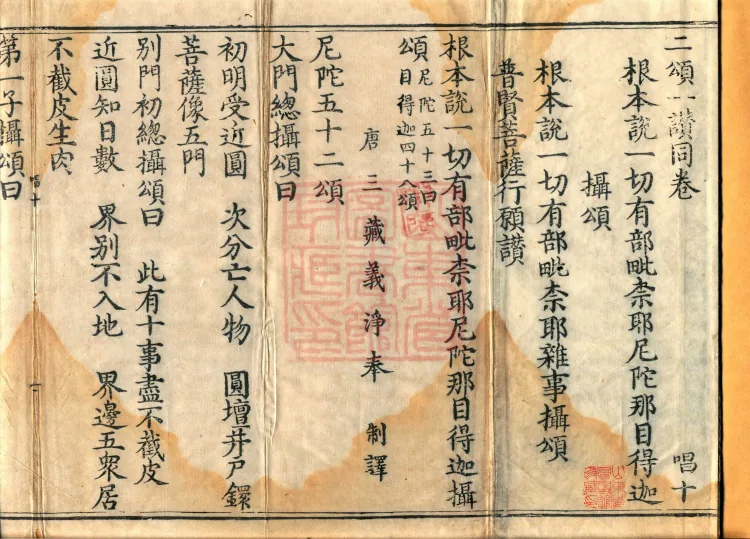 二頌一讃同卷 唱十
根本說一切有部毗柰耶尼陀那目得迦
攝頌
根本說一切有部毗柰耶雜事攝頌
普賢菩薩行願讃
根本說一切有部毗柰耶尼陀那目得迦攝
頌 尼陀五十三
目得迦四十八頌
唐三藏義淨奉 制譯
尼陀五十二頌
大門總攝頌曰
初明受近圓 次分亡人物 圓壇并戸鐶
菩薩像五門
別門初總攝頌曰 此有十事盡不截皮
近圓知日數 界別不入地 界邊五衆居
不截皮生肉
唱十 一
第一子攝頌曰